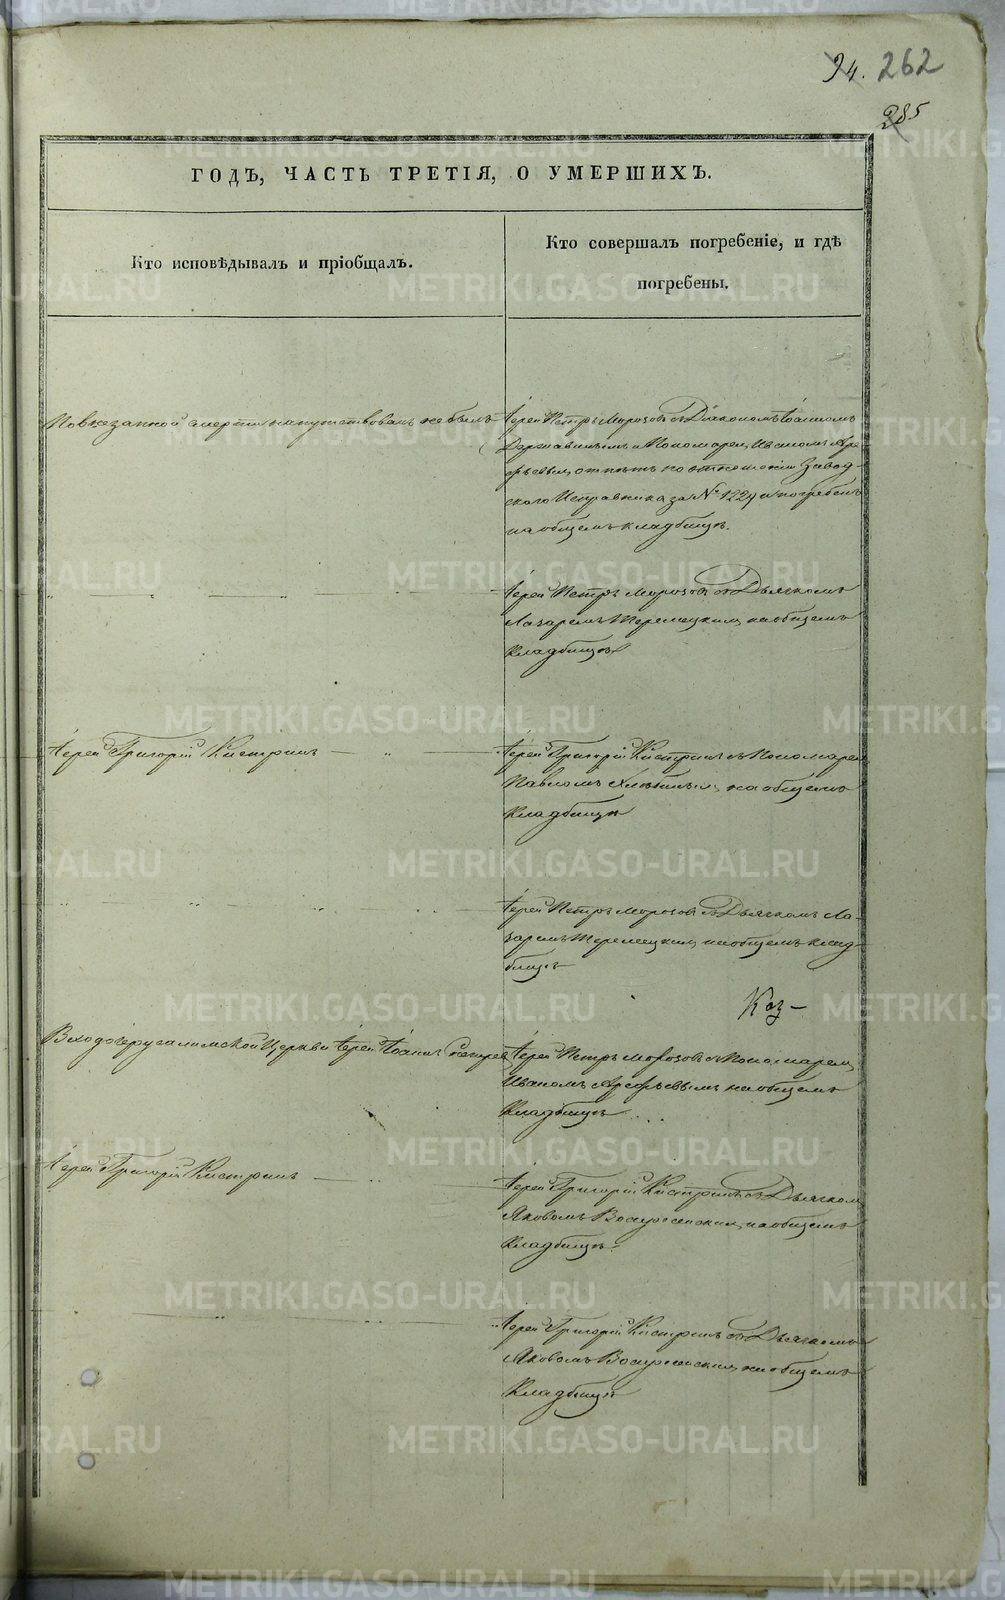 94. 262
285
ГОДЪ, ЧАСТЬ ТРЕТІЯ, О УМЕРШИХЪ.
Кто исповѣдывалъ и пріобщалъ.
Кто совершалъ погребеніе, и гдѣ
погребены.
смерти напутствованъ не былъ
Іерей Петръ Морозовъ съ Діакономъ Іоанномъ
и Пономарем Иваномъ Аре-
фьевым отпѣтъ по отношенію Завод-
скаго Исправника за № 1229 и погребенъ
на общемъ кладбищѣ.
Іерей Петръ Морозовъ съ Дьячкомъ
Лазаремъ на общемъ
Кладбищѣ
Іерей Григорій Кистринъ
Іерей Григорій Кистринъ съ Пономарем
Павломъ на общемъ
Кладбищѣ
Іерей Петръ Морозовъ съ Дьячкомъ Ла-
заремъ на общемъ клад-
бищѣ
Входоіерусалимской Церкви Іерей Іоаннъ
Іерей Петръ Морозовъ съ Пономарем
Иваномъ Арефьевымъ на общемъ
Кладбищѣ
Іерей Григорій Кистринъ
Іерей Григорій Кистринъ съ Дьячком
Яковомъ Воскресенским на общемъ
Кладбищѣ.
Іерей Григорій Кистринъ съ Дьячкомъ
Яковомъ Воскресенским на общемъ
Кладбищѣ
METRIKI.GASO-URAL.RU